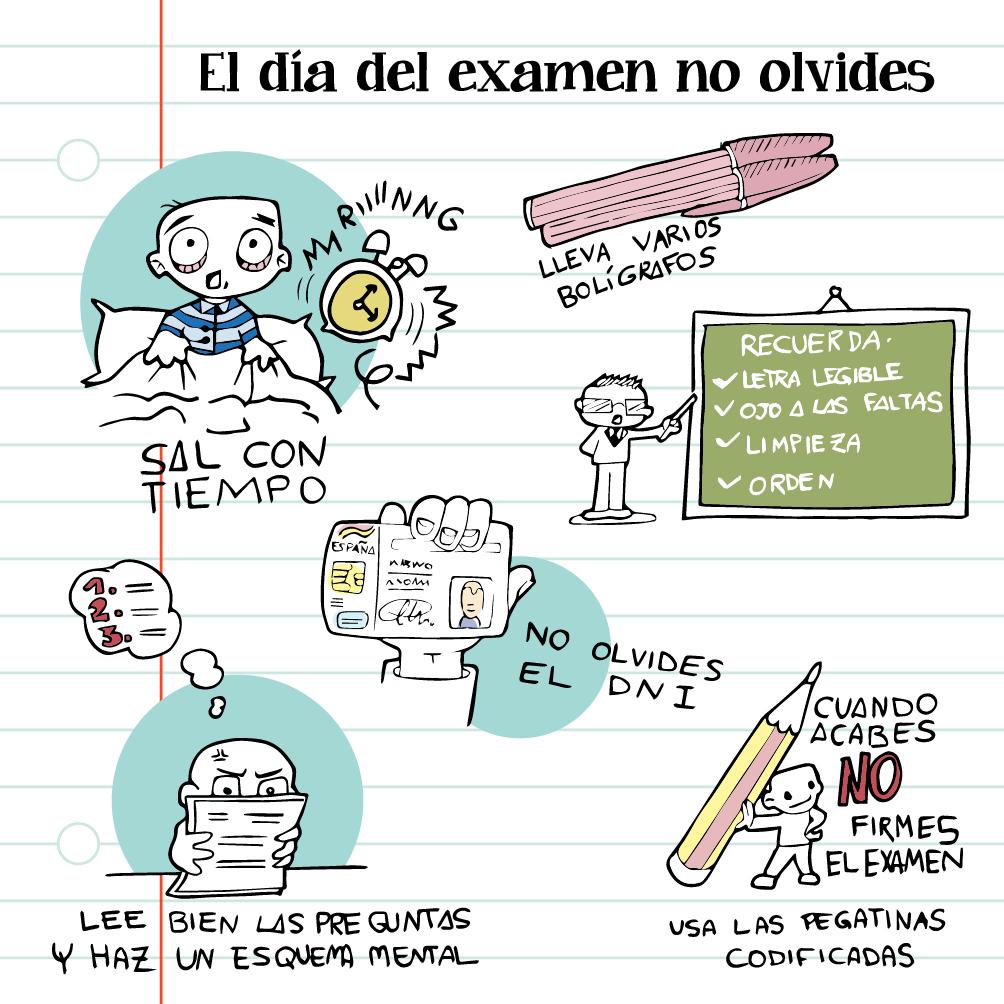 El día del examen no olvides
RIIIINNNG
SAL CON
TIEMPO
LLEVA VARIOS
BOLÍGRAFOS
RECUERDA.
LETRA LEGIBLE
OJO A LAS FALTAS
LIMPIEZA
ORDEN
ESPAÑA
NO OLVIDES
EL DNI
1.
2.
3.
LEE BIEN LAS PREGUNTAS
Y HAZ UN ESQUEMA MENTAL
CUANDO
ACABES
NO
FIRMES
EL EXAMEN
USA LAS PEGATINAS
CODIFICADAS